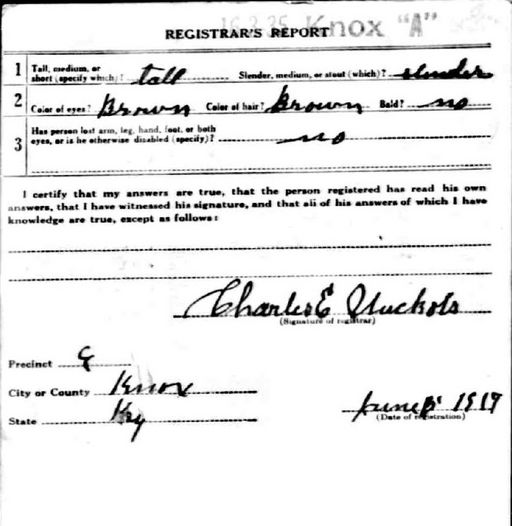 Knox "A"
REGISTRAR'S REPORT
1 Tall, medium, or short (specify which)? tall Slender, medium, or stout (which)? slender
2 Color of eyes? Brown Color of hair? Brown Bald? no
3 Has person lost arm, leg, hand, foot, or both eyes, or is he otherwise disabled (specify)? no
I certify that my answers are true, that the person registered has read his own
answers, that I have witnessed his signature, and that all of his answers of which I have
knowledge are true, except as follows:
Charles E Nuckols
(Signature of registrar)
Precinct
City or County Knox
State Ky
June 5 1917
(Date of registration)